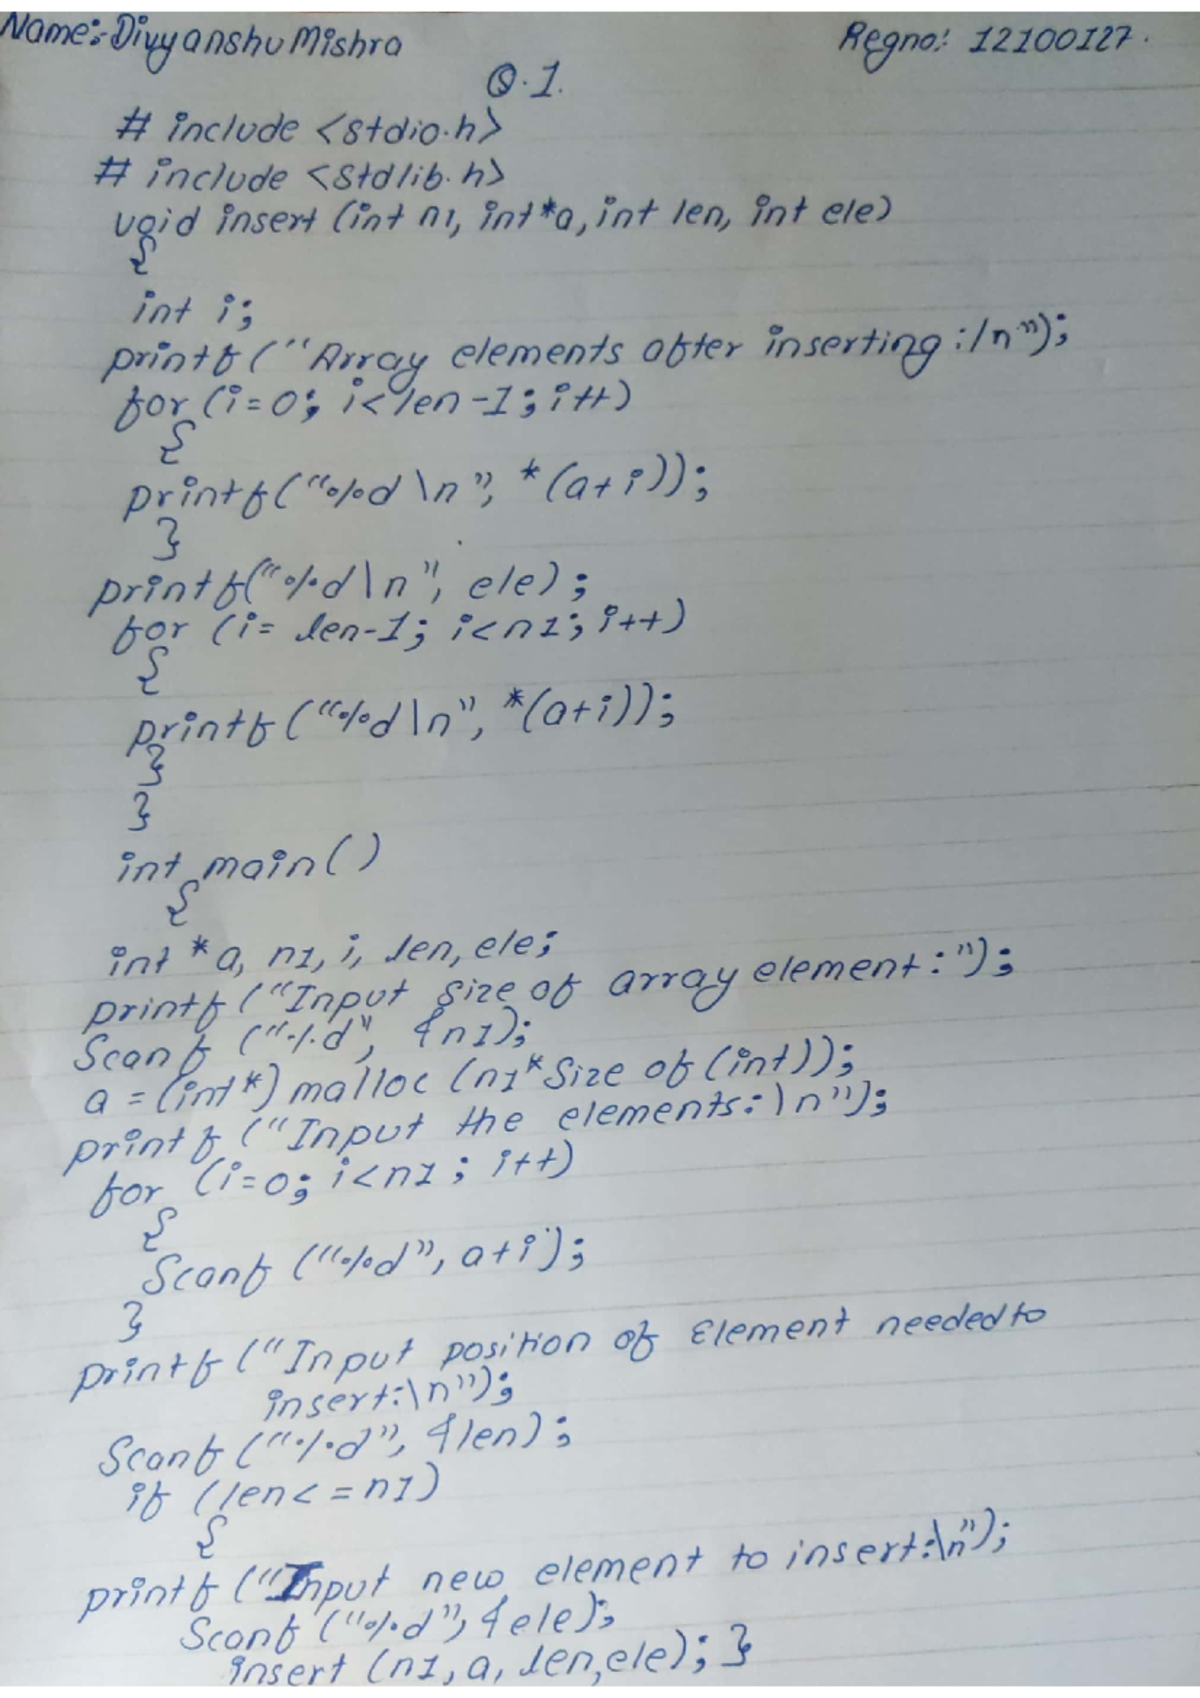 Name:-Divyanshu Mishra Regno: 12100127.
Q.1.
# include <stdio.h>
# include <stdlib.h>
void insert (int n1, int*a, int len, int ele)
{
int i;
printf("Array elements after inserting:/n");
for (i=0; i<len-1; i++)
{
printf("%d\n", *(a+i));
}
printf("%d\n", ele);
for (i= len-1; i<n1; i++)
{
printf("%d\n", *(a+i));
}
}
int main()
{
int *a, n1, i, len, ele;
printf("Input size of array element:");
Scanf ("%d", &n1);
a = (int*) malloc (n1*Size of (int));
printf ("Input the elements:\n");
for (i=0; i<n1; i++)
{
Scanf ("%d", a+i);
}
printf ("Input position of Element needed to
insert:\n");
Scanf ("%d", &len);
if (len<=n1)
{
printf ("Input new element to insert:\n");
Scanf ("%d", &ele);
insert (n1, a, len, ele); }